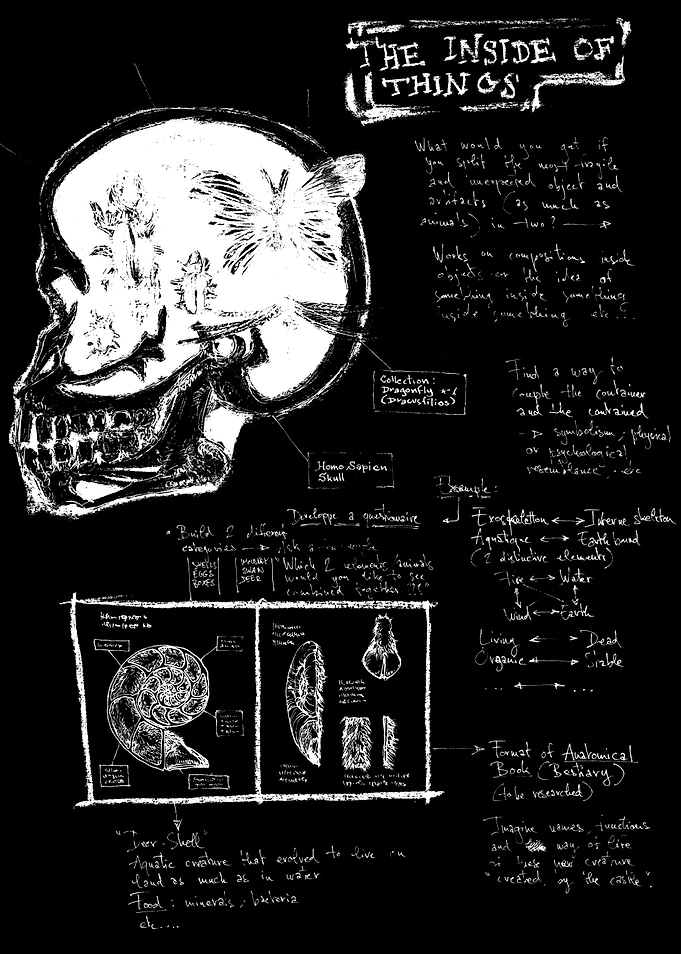 THE INSIDE OF
THINGS
What would you get if
you split the most fragile
and unexpected object and
artifacts (as much as
animals) in two?
Works on compositions inside
objects or the idea of
something inside something
inside something etc...
Find a way to
couple the container
and the contained
symbolism, physical
or psychological
resemblance, .. etc
Collection:
Dragonfly
Homo Sapien
Skull
Example:
Exoskeleton ↔ Interne skeleton
Aquatique ↔ Earthbound
(2 distinctive elements)
Fire ↔ Water
Wind ↔ Earth
Living ↔ Dead
Organic ↔ Stable
... ↔ ...
Developpe a questionaire
Build 2 different
categories
SHELLS
EGGS
BOXES
SWAN
DEER
Which 2 elements/animals
would you like to see
combined together ?!
Format of Anatomical
Book (Bestiary)
(to be researched)
Imagine names, functions
and way of life
of these new creature
"created by the castle".
"Deer-Shell"
Aquatic creature that evolved to live on
land as much as in water
Food: minerals, bacteria
etc....